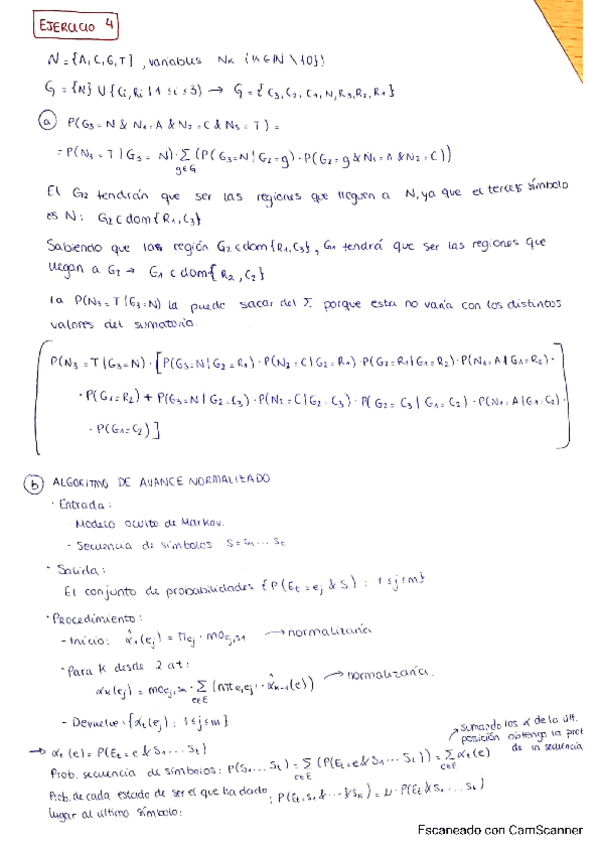 EJERCICIO 4
N = {A, C, G, T} , variables Nk (k ∈ IN \ {0})
G = {N} U {Ci, Ri | 1 ≤ i ≤ 3} → G = {C3, C2, C1, N, R3, R2, R1}
(a) P(G3 = N & N1 = A & N2 = C & N3 = T) =
= P(N3 = T | G3 = N) · Σ g∈G (P(G3 = N | G2 = g) · P(G2 = g & N1 = A & N2 = C))
El G2 tendrán que ser las regiones que lleguen a N, ya que el tercer símbolo
es N: G2 ⊂ dom{R1, C3}
Sabiendo que las región G2 ⊂ dom{R1, C3}, G1 tendrá que ser las regiones que
llegan a G2 → G1 ⊂ dom{R2, C2}
la P(N3 = T | G3 = N) la puedo sacar del Σ porque esta no varía con los distintos
valores del sumatorio.
P(N3 = T | G3 = N) · [P(G3 = N | G2 = R1) · P(N2 = C | G2 = R1) · P(G2 = R1 | G1 = R2) · P(N1 = A | G1 = R2) ·
· P(G1 = R2) + P(G3 = N | G2 = C3) · P(N2 = C | G2 = C3) · P(G2 = C3 | G1 = C2) · P(N1 = A | G1 = C2) ·
· P(G1 = C2)]
(b) ALGORITMO DE AVANCE NORMALIZADO
· Entrada:
Modelo oculto de Markov.
- Secuencia de símbolos S = S1 ... St
· Salida:
El conjunto de probabilidades {P(Et = ej & S) : 1 ≤ j ≤ m}
· Procedimiento:
- Inicio: α̂1(ej) = πej · moej,s1 → normalizaría
· Para k desde 2 a t:
αk(ej) = moej,sk · Σ e∈E (mte,ej · α̂k-1(e)) → normalizaría.
- Devuelve: {αt(ej) : 1 ≤ j ≤ m}
→ αt(e) = P(Et = e & S1 ... St)
Sumando los α de la últ.
posición obtengo la prob
de la secuencia
Prob. secuencia de símbolos: P(S1 ... St) = Σ e∈E (P(Et = e & S1 ... St)) = Σ e∈E αt(e)
Prob. de cada estado de ser el que ha dado
lugar al último símbolo:
Escaneado con CamScanner